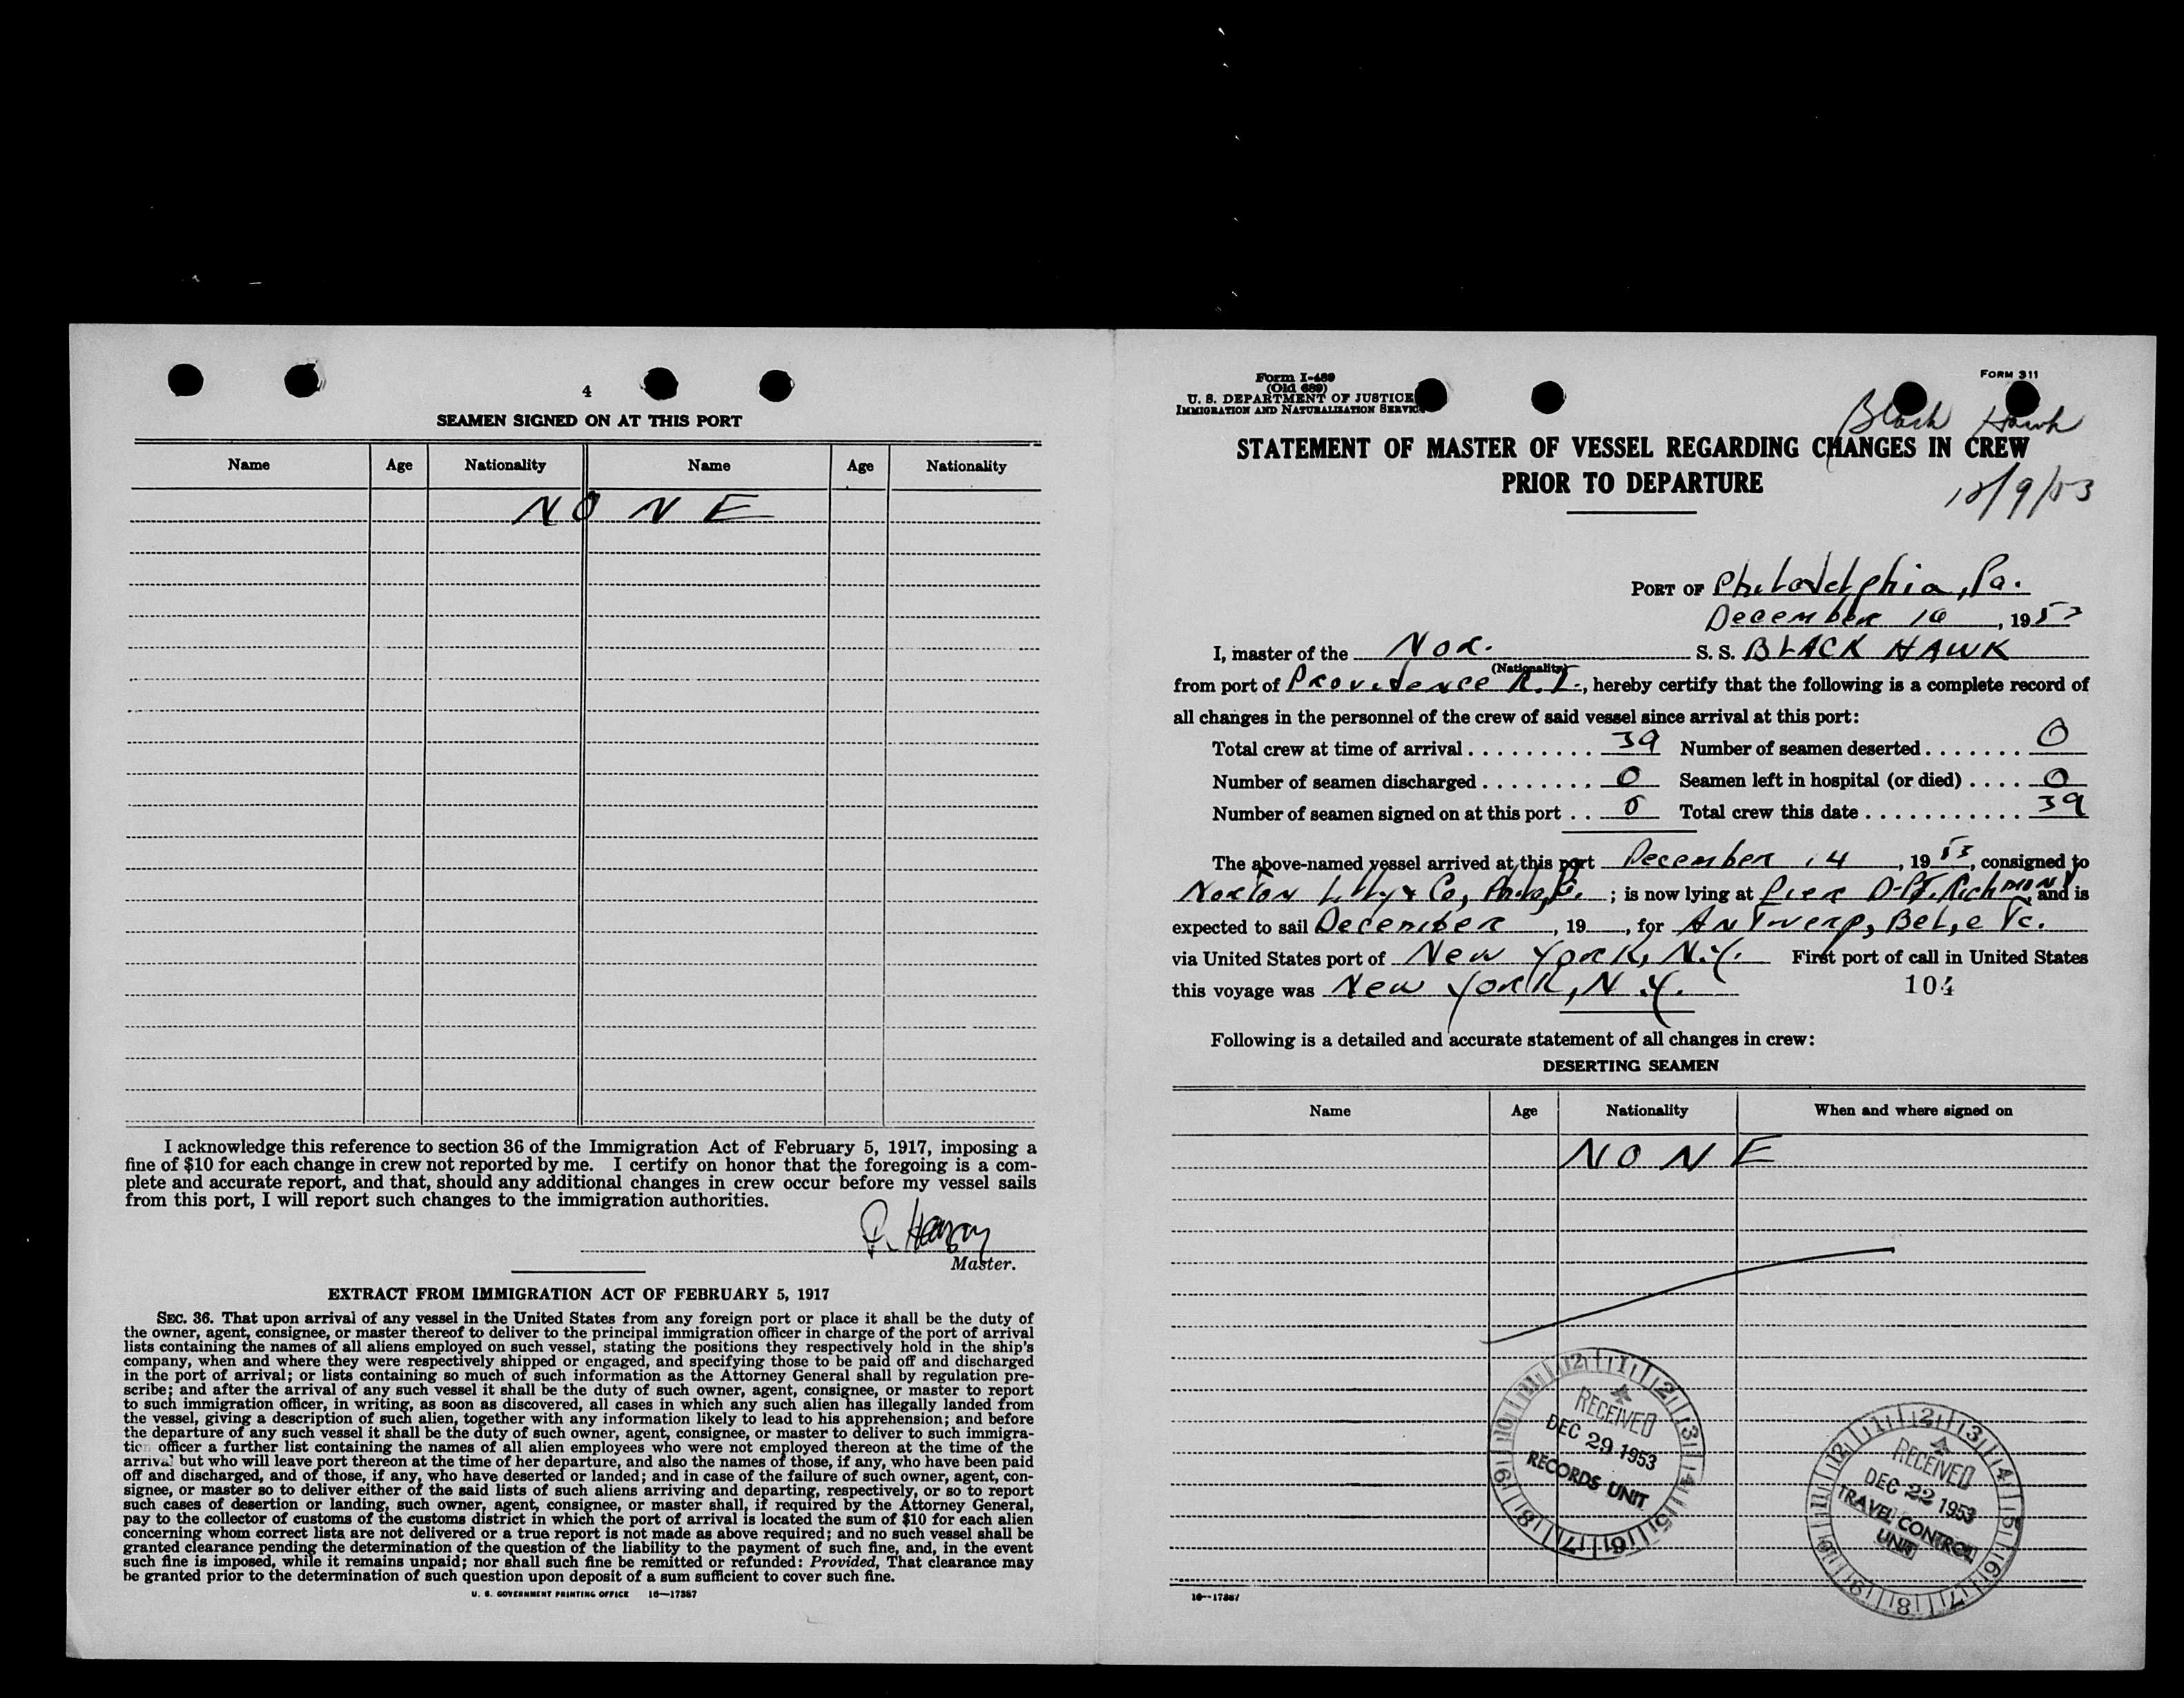 4
SEAMEN SIGNED ON AT THIS PORT
Name Age Nationality Name Age Nationality
NONE
I acknowledge this reference to section 36 of the Immigration Act of February 5, 1917, imposing a
fine of $10 for each change in crew not reported by me. I certify on honor that the foregoing is a com-
plete and accurate report, and that, should any additional changes in crew occur before my vessel sails
from this port, I will report such changes to the immigration authorities.
Master.
EXTRACT FROM IMMIGRATION ACT OF FEBRUARY 5, 1917
SEC. 36. That upon arrival of any vessel in the United States from any foreign port or place it shall be the duty of
the owner, agent, consignee, or master thereof to deliver to the principal immigration officer in charge of the port of arrival
lists containing the names of all aliens employed on such vessel, stating the positions they respectively hold in the ship's
company, when and where they were respectively shipped or engaged, and specifying those to be paid off and discharged
in the port of arrival; or lists containing so much of such information as the Attorney General shall by regulation pre-
scribe; and after the arrival of any such vessel it shall be the duty of such owner, agent, consignee, or master to report
to such immigration officer, in writing, as soon as discovered, all cases in which any such alien has illegally landed from
the vessel, giving a description of such alien, together with any information likely to lead to his apprehension; and before
the departure of any such vessel it shall be the duty of such owner, agent, consignee, or master to deliver to such immigra-
tion officer a further list containing the names of all alien employees who were not employed thereon at the time of the
arrival but who will leave port thereon at the time of her departure, and also the names of those, if any, who have been paid
off and discharged, and of those, if any, who have deserted or landed; and in case of the failure of such owner, agent, con-
signee, or master so to deliver either of the said lists of such aliens arriving and departing, respectively, or so to report
such cases of desertion or landing, such owner, agent, consignee, or master shall, if required by the Attorney General,
pay to the collector of customs of the customs district in which the port of arrival is located the sum of $10 for each alien
concerning whom correct lists are not delivered or a true report is not made as above required; and no such vessel shall be
granted clearance pending the determination of the question of the liability to the payment of such fine, and, in the event
such fine is imposed, while it remains unpaid; nor shall such fine be remitted or refunded: Provided, That clearance may
be granted prior to the determination of such question upon deposit of a sum sufficient to cover such fine.
U. S. GOVERNMENT PRINTING OFFICE 16—17387
Form I-489
(Old 689)
U. S. DEPARTMENT OF JUSTICE
IMMIGRATION AND NATURALIZATION SERVICE
FORM 311
Black Hawk
STATEMENT OF MASTER OF VESSEL REGARDING CHANGES IN CREW
PRIOR TO DEPARTURE
12/9/53
PORT OF Philadelphia, Pa.
December 16, 1953
I, master of the Nor. S. S. BLACK HAWK
(Nationality)
from port of Providence R.I., hereby certify that the following is a complete record of
all changes in the personnel of the crew of said vessel since arrival at this port:
Total crew at time of arrival ......... 39 Number of seamen deserted ....... 0
Number of seamen discharged ........ 0 Seamen left in hospital (or died) .... 0
Number of seamen signed on at this port .. 0 Total crew this date ............ 39
The above-named vessel arrived at this port December 14, 1953, consigned to
Norton Lilly & Co, Phila, Pa. ; is now lying at Pier D-Pt. Richmond and is
expected to sail December , 19 , for Antwerp, Bel, etc.
via United States port of New York, N.Y. First port of call in United States
this voyage was New York, N.Y. 104
Following is a detailed and accurate statement of all changes in crew:
DESERTING SEAMEN
Name Age Nationality When and where signed on
NONE
RECEIVED
DEC 29 1953
RECORDS UNIT
RECEIVED
DEC 22 1953
TRAVEL CONTROL
UNIT
16—17387